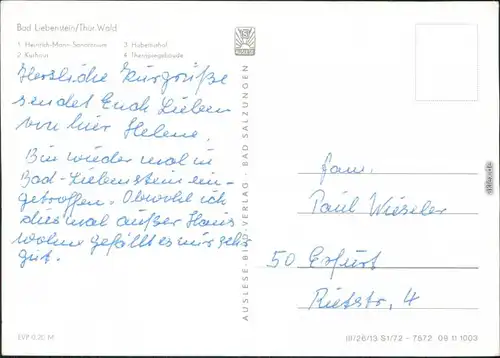 Bad Liebenstein/Thür. Wald
1 Heinrich-Mann-Sanatorium 3 Hubertushof
2 Kurhaus 4 Therapiegebäude
Herzliche Kurgrüße
sendet Euch Lieben
von hier Helene.
Bin wieder mal in
Bad-Liebenstein ein-
getroffen. Obwohl ich
dies mal außer Haus
wohne gefällt es mir sehr
gut.
EVP 0,20 M
AUSLESE-BILD-VERLAG · BAD SALZUNGEN
Fam.
Paul Wieseler
50 Erfurt
Rietstr. 4
III/26/13 S1/72 - 7572 09 11 1003